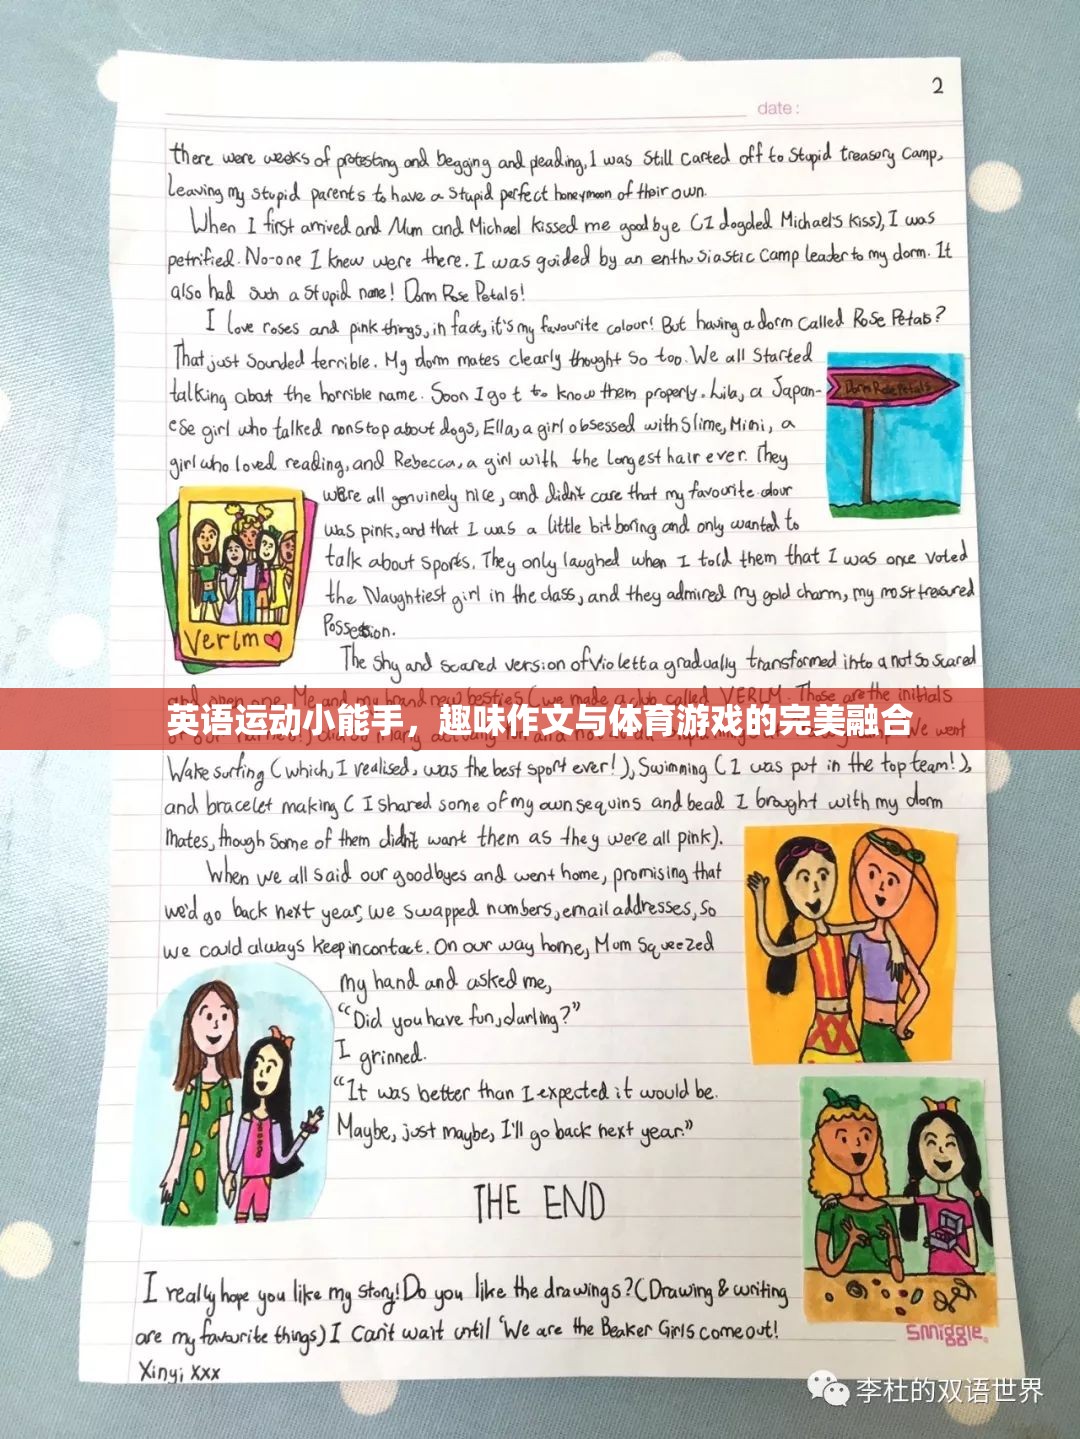 2
date:
there were weeks of protesting and begging and pleading, I was still carted off to stupid treasury camp,
leaving my stupid parents to have a stupid perfect honeymoon of their own.
When I first arrived and Mum and Michael kissed me goodbye (I dogded Michael's kiss), I was
petrified. No-one I knew were there. I was guided by an enthusiastic camp leader to my dorm. It
also had such a stupid name! Dorm Rose Petals!
I love roses and pink things, in fact, it's my favourite colour! But having a dorm called Rose Petals?
That just sounded terrible. My dorm mates clearly thought so too. We all started
talking about the horrible name. Soon I got to know them properly. Lila, a Japan-
ese girl who talked nonstop about dogs, Ella, a girl obsessed with slime, Mimi, a
girl who loved reading, and Rebecca, a girl with the longest hair ever. They
were all genuinely nice, and didn't care that my favourite colour
was pink, and that I was a little bit boring and only wanted to
talk about sports. They only laughed when I told them that I was once voted
the Naughtiest girl in the class, and they admired my gold charm, my most treasured
Possession.
Dorm Rose Petals
Verlm
The shy and scared version of Violetta gradually transformed into a not so scared
and open one. Me and my brand new besties (we made a club called VERLM. Those are the initials
英语运动小能手，趣味作文与体育游戏的完美融合
We went
Wake surfing (which, I realised, was the best sport ever!), Swimming (I was put in the top team!),
and bracelet making (I shared some of my own sequins and bead I brought with my dorm
mates, though some of them didn't want them as they were all pink).
When we all said our goodbyes and went home, promising that
we'd go back next year, we swapped numbers, email addresses, so
we could always keep in contact. On our way home, Mom squeezed
my hand and asked me,
"Did you have fun, darling?"
I grinned.
"It was better than I expected it would be.
Maybe, just maybe, I'll go back next year."
THE END
I really hope you like my story! Do you like the drawings? (Drawing & writing
are my favourite things) I can't wait until 'We are the Beaker Girls come out!
Xinyi xxx
Smiggle
李杜的双语世界